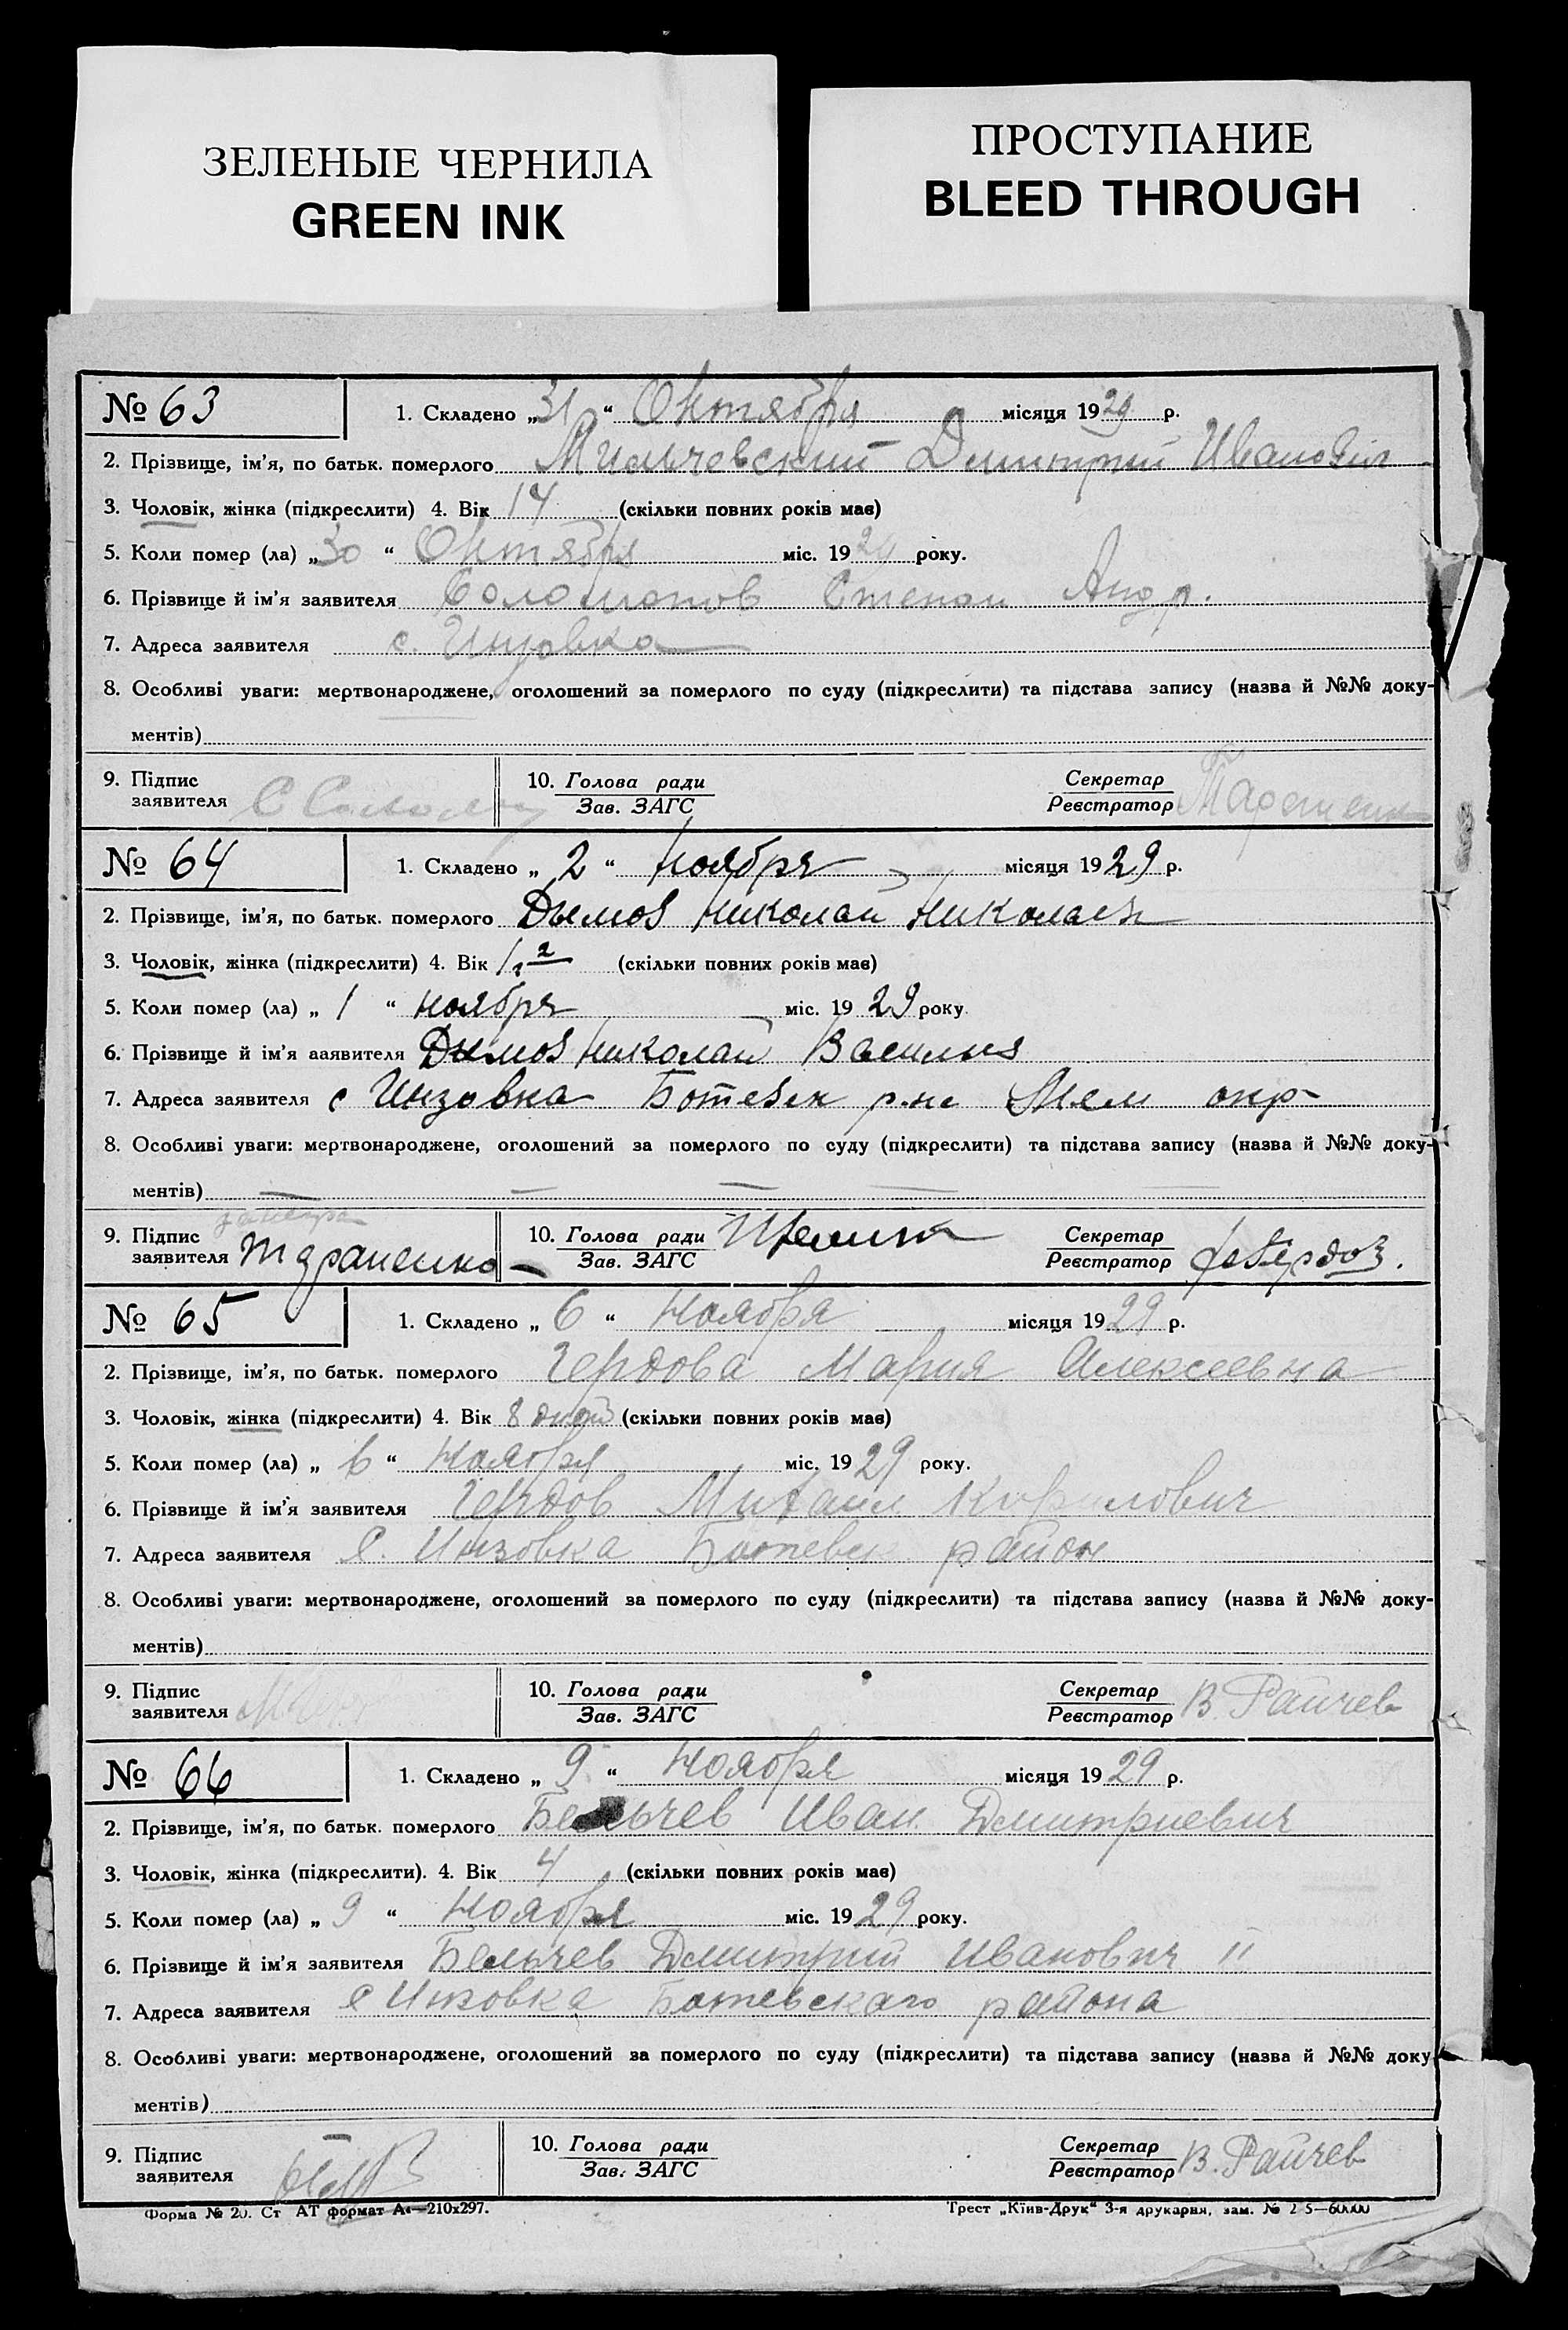 ЗЕЛЕНЫЕ ЧЕРНИЛА
GREEN INK
ПРОСТУПАНИЕ
BLEED THROUGH
№ 63
1. Складено „31“ Октября місяця 1929 р.
2. Прізвище, ім'я, по батьк. померлого Мильчевский Дмитрий Иванович
3. Чоловік, жінка (підкреслити) 4. Вік 14 (скільки повних років має)
5. Коли помер (ла) „30“ Октября міс. 1929 року.
6. Прізвище й ім'я заявителя Степан Андр.
7. Адреса заявителя с. Инзовка
8. Особливі уваги: мертвонароджене, оголошений за померлого по суду (підкреслити) та підстава запису (назва й №№ доку-
ментів)
9. Підпис заявителя
10. Голова ради
Зав. ЗАГС
Секретар
Реєстратор
№ 64
1. Складено „2“ ноября місяця 1929 р.
2. Прізвище, ім'я, по батьк. померлого Дымов Николай
3. Чоловік, жінка (підкреслити) 4. Вік (скільки повних років має)
5. Коли помер (ла) „1“ ноября міс. 1929 року
6. Прізвище й ім'я ааявителя Дымов Николай
7. Адреса заявителя с Инзовка окр
8. Особливі уваги: мертвонароджене, оголошений за померлого по суду (підкреслити) та підстава запису (назва й №№ доку-
ментів)
9. Підпис заявителя
10. Голова ради
Зав. ЗАГС
Секретар
Реєстратор
№ 65
1. Складено „6“ Ноября місяця 1929 р.
2. Прізвище, ім'я, по батьк. померлого Чердова Мария Алексеевна
3. Чоловік, жінка (підкреслити) 4. Вік 8 дней (скільки повних років має)
5. Коли помер (ла) „6“ Ноября міс. 1929 року.
6. Прізвище й ім'я заявителя Чердов Михаил Кирилович
7. Адреса заявителя с. Инзовка Ботевск район
8. Особливі уваги: мертвонароджене, оголошений за померлого по суду (підкреслити) та підстава запису (назва й №№ доку-
ментів)
9. Підпис заявителя
10. Голова ради
Зав. ЗАГС
Секретар
Реєстратор В. Райчев
№ 66
1. Складено „9“ Ноября місяця 1929 р.
2. Прізвище, ім'я, по батьк. померлого Бельчев Иван Дмитриевич
3. Чоловік, жінка (підкреслити). 4. Вік 4 (скільки повних років має)
5. Коли помер (ла) „9“ Ноября міс. 1929 року.
6. Прізвище й ім'я заявителя Бельчев Дмитрий Иванович II
7. Адреса заявителя с Инзовка Ботевскаго района
8. Особливі уваги: мертвонароджене, оголошений за померлого по суду (підкреслити) та підстава запису (назва й №№ доку
ментів)
9. Підпис заявителя
10. Голова ради
Зав. ЗАГС
Секретар
Реєстратор В. Райчев
Форма № 20. Ст АТ формат А4—210х297.
Трест „Київ-Друк“ 3-я друкарня, зам. №